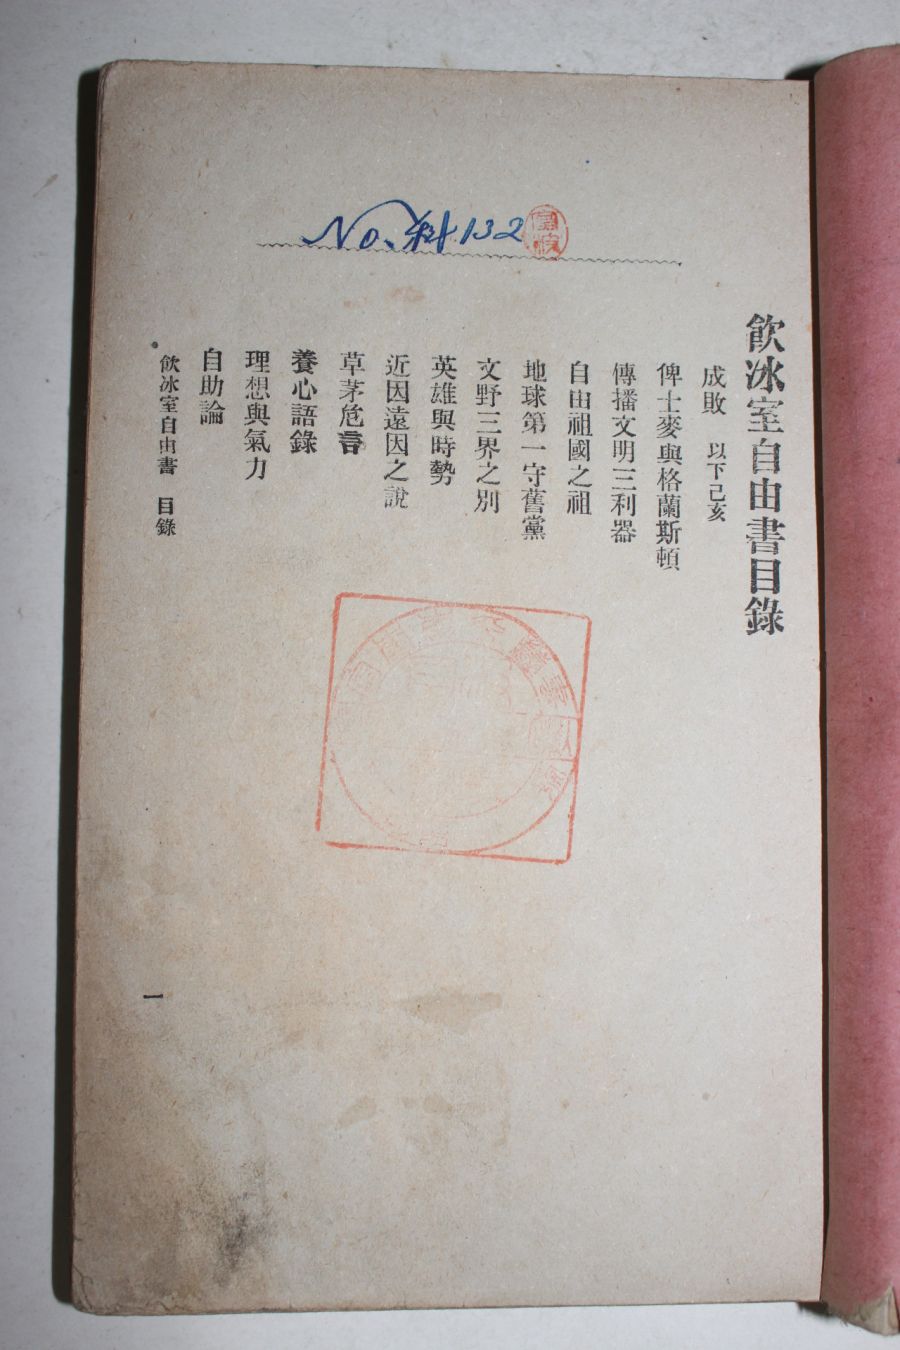 No. 132
飮冰室自由書目錄
成敗 以下己亥
俾士麥與格蘭斯頓
傳播文明三利器
自由祖國之祖
地球第一守舊黨
文野三界之別
英雄與時勢
近因遠因之說
草茅危言
養心語錄
理想與氣力
自助論
飮冰室自由書 目錄
一